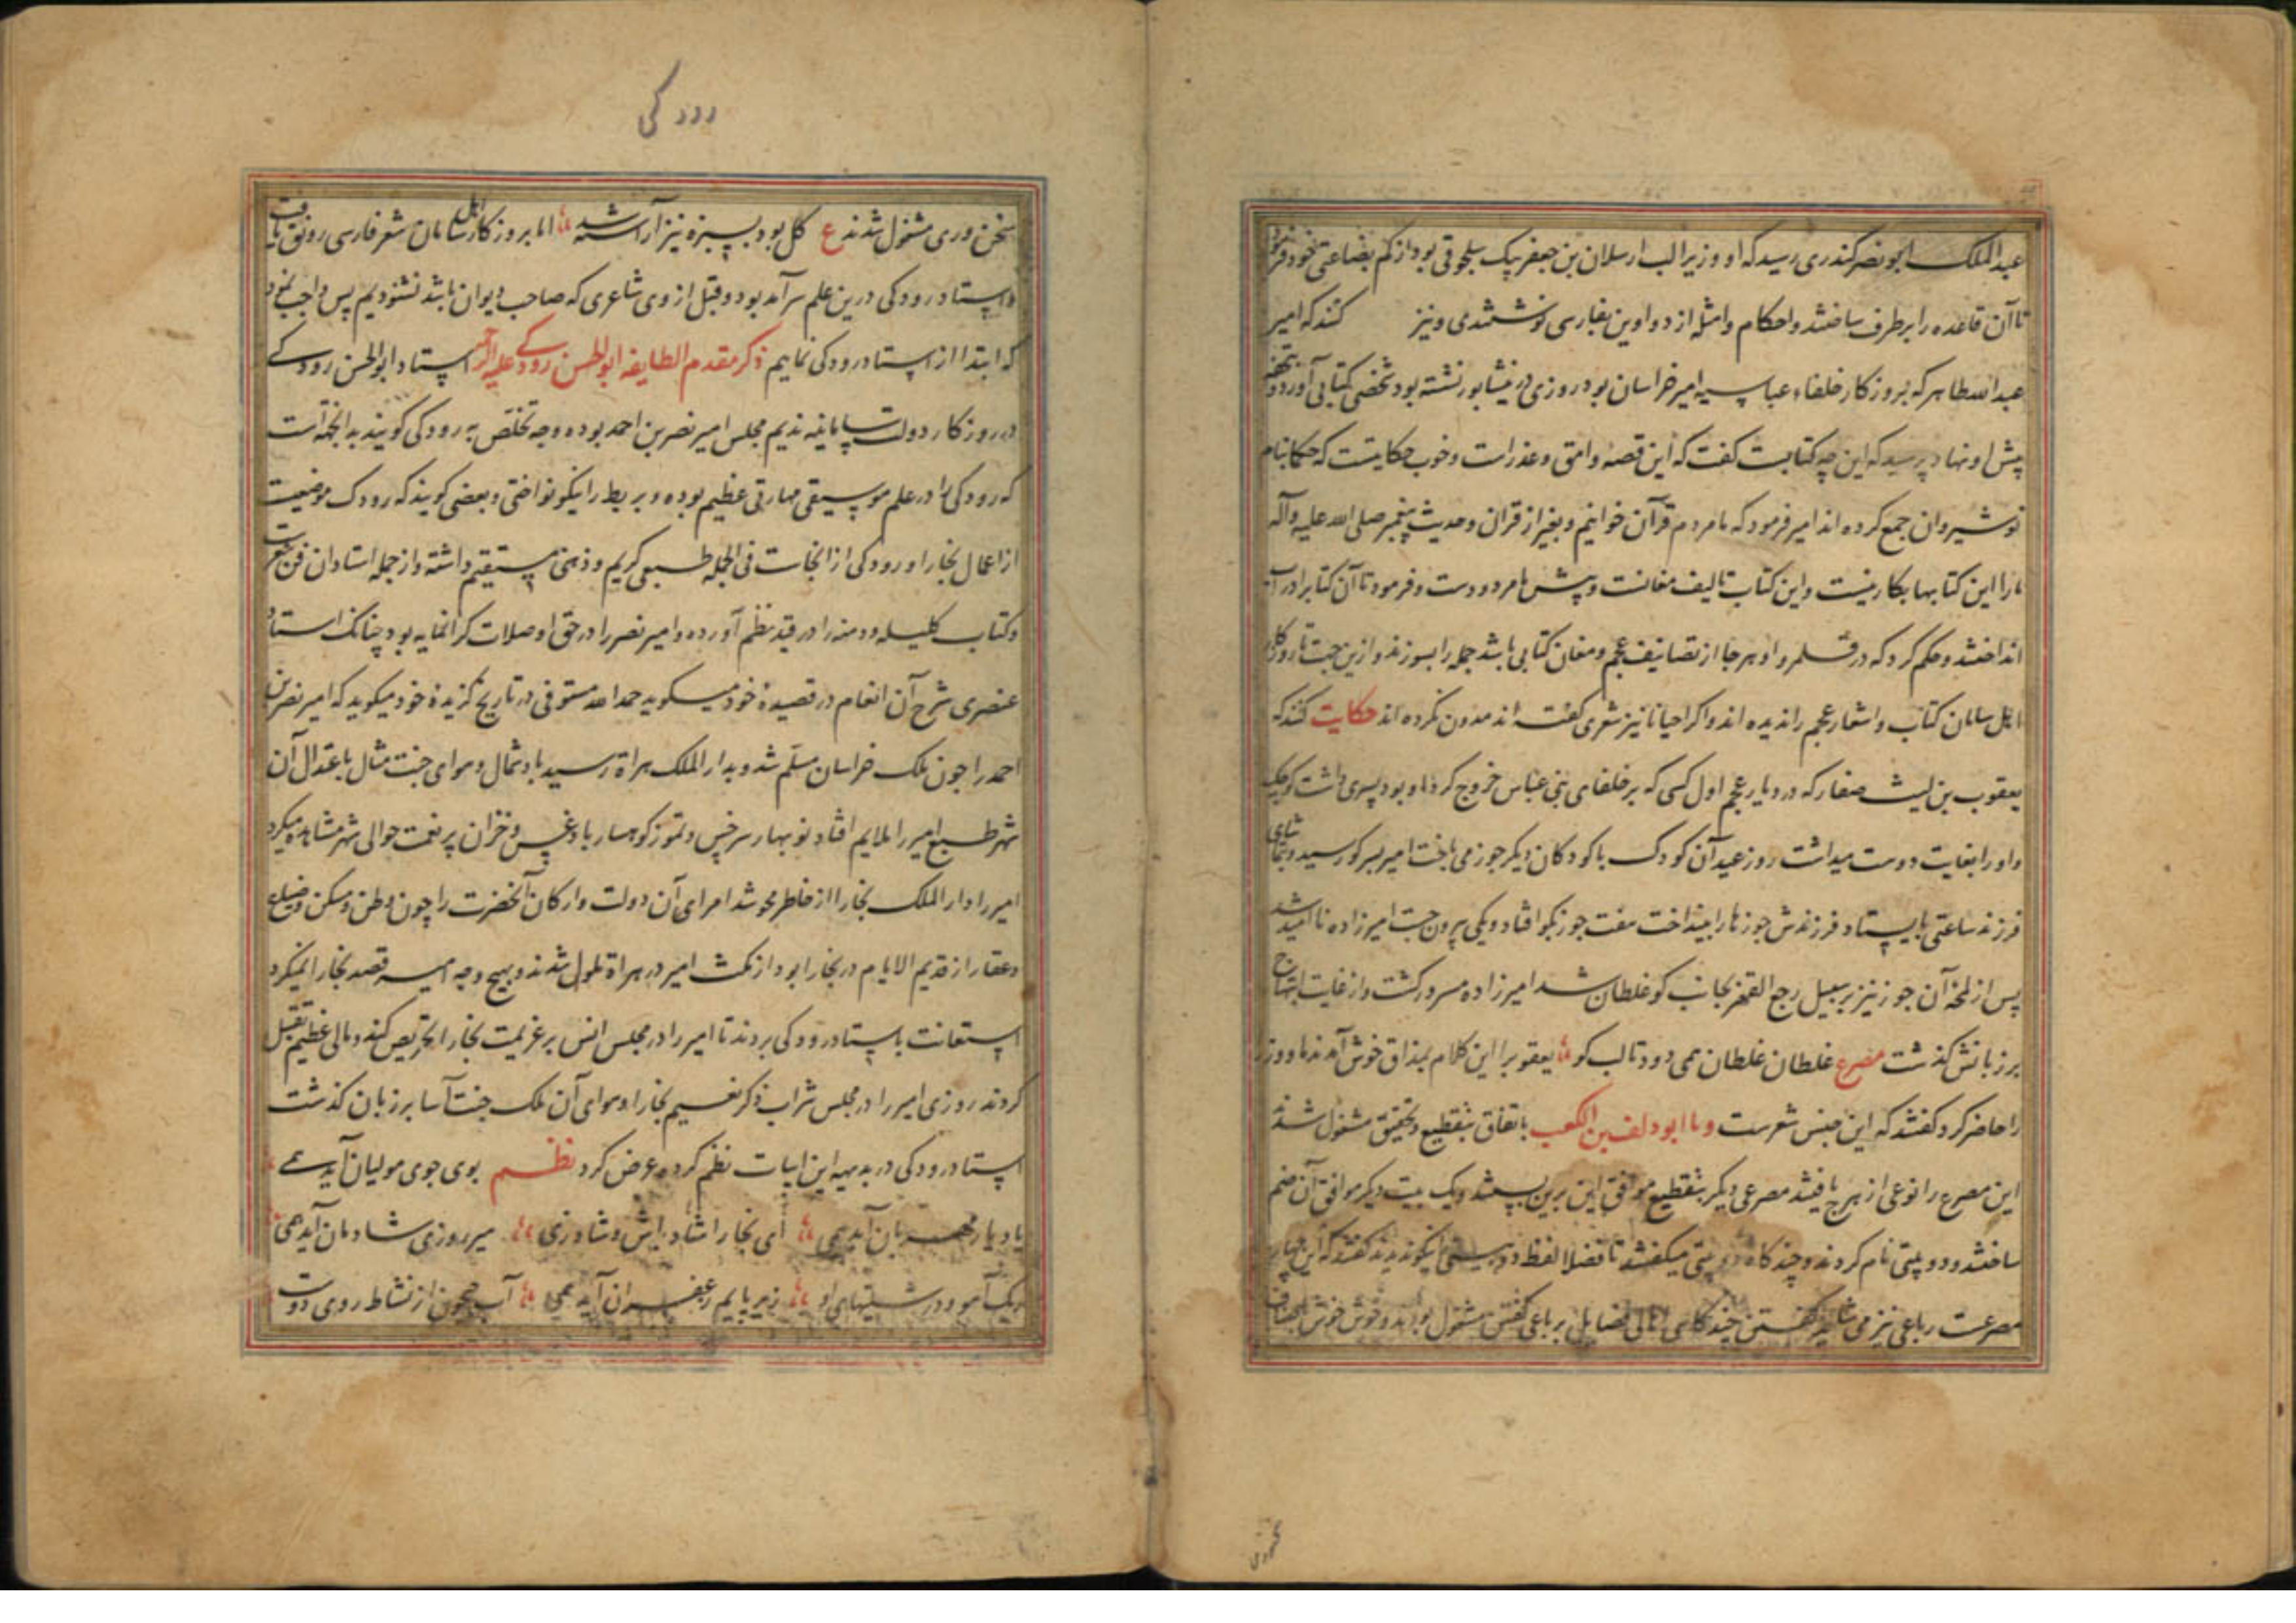 عبدالملک ابونصر کندری رسید که او وزیر الب ارسلان بن جعفر بیک سلجوقی بود از کم بضاعتی خود فرمود
تا آن قاعده را بر طرف ساختند و احکام و امثله از دواوین بفارسی نوشتندی و نیز کنند که امیر
عبدالله طاهر که بروزکار خلفاء عباسیه امیر خراسان بود روزی در نیشابور نشسته بود شخصی کتابی آورد و بتحفه
پیش او نهاد پرسید که این چه کتابست کفت که این قصه وامق و عذراست و خوب حکایتست که حکما بنام
نوشیروان جمع کرده اند امیر فرمود که ما مردم قرآن خوانیم و بغیر از قران و حدیث پیغمبر صلی الله علیه وآله
ما را این کتابها بکار نیست و این کتاب تالیف مغانست و پیش ما مردودست و فرمود تا آن کتاب را در آب
انداختند و حکم کرد که در قلمرو او هر جا از تصانیف عجم و مغان کتابی باشد جمله را بسوزند و ازین جهت تا روزکار
اهل سامان کتاب و اشعار عجم را ندیده اند و اکر احیانا نیز شعری کفته اند مدون نکرده اند حکایت کنند که
یعقوب بن لیث صفار که در دیار عجم اول کسی که بر خلفای بنی عباس خروج کرد او بود پسری داشت کوچک
و او را بغایت دوست میداشت روز عید آن کودک با کودکان دیکر جوز می باخت امیر بسر کو رسید و بتماشای
فرزند ساعتی بایستاد فرزندش جوزها را بینداخت هفت جوز بکو افتاد و یکی بیرون جست امیرزاده ناامید شد
پس از لمحه آن جوز نیز بر سبیل رجع القهقر بجانب کو غلطان شد امیرزاده مسرور کشت و از غایت ابتهاج
بر زبانش کذشت مصرع غلطان غلطان همی دود تا لب کو یعقوب را این کلام بمذاق خوش آمد ندما و وزرا
را حاضر کرد کفتند که این جنس شعرست و با ابودلف بن الکعب باتفاق بتقطیع و تحقیق مشغول شدند
این مصرع را نوعی از هرج یافتند مصرعی دیکر بتقطیع موافق این برین بستند و یک بیت دیکر موافق آن ضم
ساختند و دو بیتی نام کردند و چند کاه دو بیتی میکفتند تا فضلا لفظ دو بیتی نیکو ندیدند کفتند که این چهار
مصرعست رباعی نیز می شاید کفتن چند کاهی اهالی فضایل برباعی کفتن مشغول بودند و خوش خوش باصناف
رودکی
سخن وری مشغول شدند ع کل بود بسبزه نیز آراسته شد اما بروزکار اهل سامان شعر فارسی رونق یافت
و استاد رودکی درین علم سرآمد بود و قبل از وی شاعری که صاحب دیوان باشد نشنودیم پس واجب نمود
که ابتدا از استاد رودکی نماییم ذکر مقدم الطایفه ابوالحسن رودکی علیه الرحمه استاد ابوالحسن رودکے
در روزکار دولت سامانیه ندیم مجلس امیر نصر بن احمد بوده و وجه تخلص به رودکی کویند بدان جهة است
که رودکی را در علم موسیقی مهارتی عظیم بوده و بربط را نیکو نواختی و بعضی کویند که رودک موضعیست
از اعمال بخارا و رودکی از انجاست فی الجمله طبعی کریم و ذهنی مستقیم داشته و از جمله استادان فن شعرست
و کتاب کلیله و دمنه را در قید نظم آورده و امیر نصر را در حق او صلات کرانمایه بود چنانک استاد
عنصری شرح آن انعام در قصیدهٔ خود میکوید حمدالله مستوفی در تاریخ کزیدهٔ خود میکوید که امیر نصر بن
احمد را چون ملک خراسان مسلم شد و بدارالملک هراة رسید باد شمال و هوای جنت مثال باعتدال آن
شهر طبع امیر را ملایم افتاد نوبهار سرخس و تموز کوهسار بادغیس و خزان پر نعمت حوالی شهر مشاهده میکرد
امیر را دارالملک بخارا از خاطر محو شد امرای آن دولت و ارکان آنحضرت را چون وطن و مسکن و ضیاع
و عقار از قدیم الایام در بخارا بود از مکث امیر در هراة ملول شدند و بهیچ وجه امیر قصد بخارا نمیکرد
استعانت باستاد رودکی بردند تا امیر را در مجلس انس بر عزیمت بخارا تحریص کند و مالی عظیم تقبل
کردند روزی امیر را در مجلس شراب ذکر نعیم بخارا و هوای آن ملک جنت آسا بر زبان کذشت
استاد رودکی در بدیهه این ابیات نظم کرده عرض کرد نظم بوی جوی مولیان آید همے
یاد یار مهربان آید همی ای بخارا شاد باش و شاد زی میر روزی شادمان آید همی
ریک آمو و درشتیهای او زیر پایم زعفران آید همی آب جیحون از نشاط روی دوست